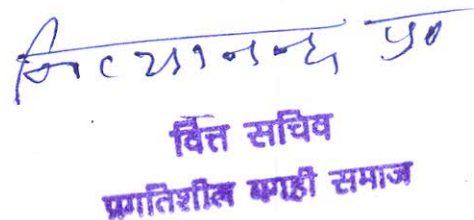 नित्यानन्द प्र०
वित्त सचिव
प्रगतिशील मगही समाज